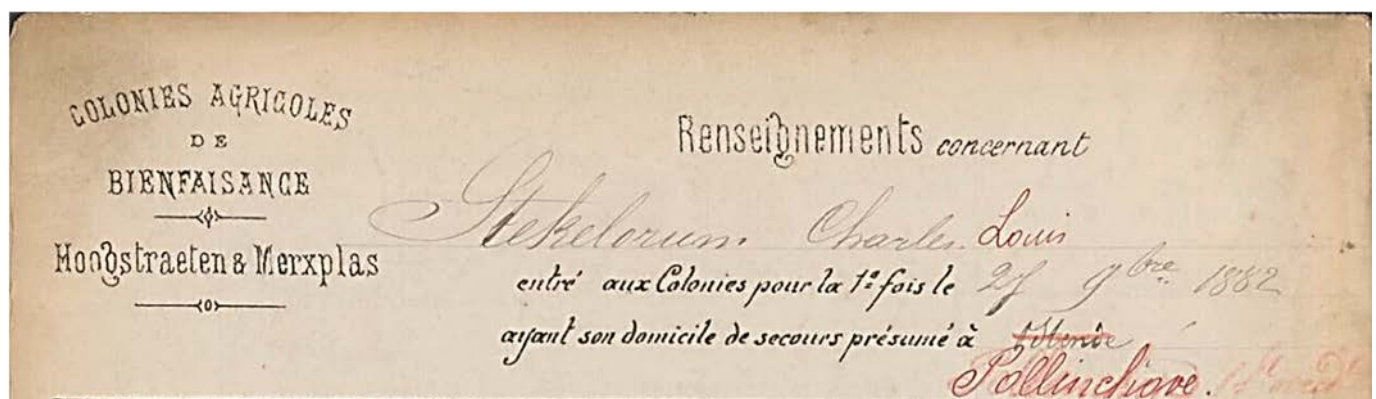 COLONIES AGRICOLES
DE
BIENFAISANCE
Hoogstraeten & Merxplas
Renseignements concernant
Stekelorum Charles Louis
entré aux Colonies pour la 1e fois le 27 9bre 1882
ayant son domicile de secours présumé à Ostende
Pollinchove.